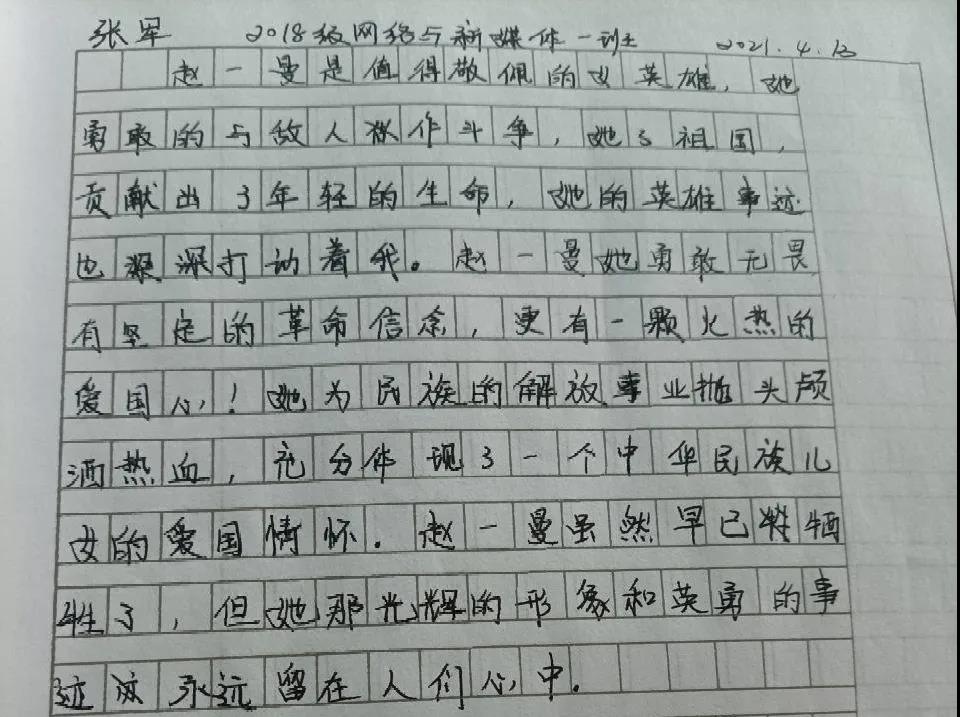 张军 2018级网络与新媒体一班 2021.4.13
赵一曼是值得敬佩的女英雄，她
勇敢的与敌人作斗争，她为祖国，
贡献出了年轻的生命，她的英雄事迹
也深深打动着我。赵一曼她勇敢无畏
有坚定的革命信念，更有一颗火热的
爱国心！她为民族的解放事业抛头颅
洒热血，充分体现了一个中华民族儿
女的爱国情怀.赵一曼虽然早已牺
牲了，但她那光辉的形象和英勇的事
迹永远留在人们心中.